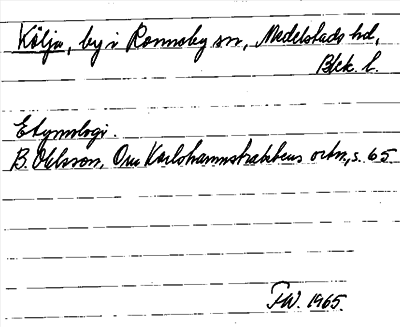 Kölja, by i Ronneby sn, Medelstads hd,
Blek. l.
Etymologi.
B. Ohlsson, Om Karlshamnstraktens ortn., s. 65.
FW. 1965.